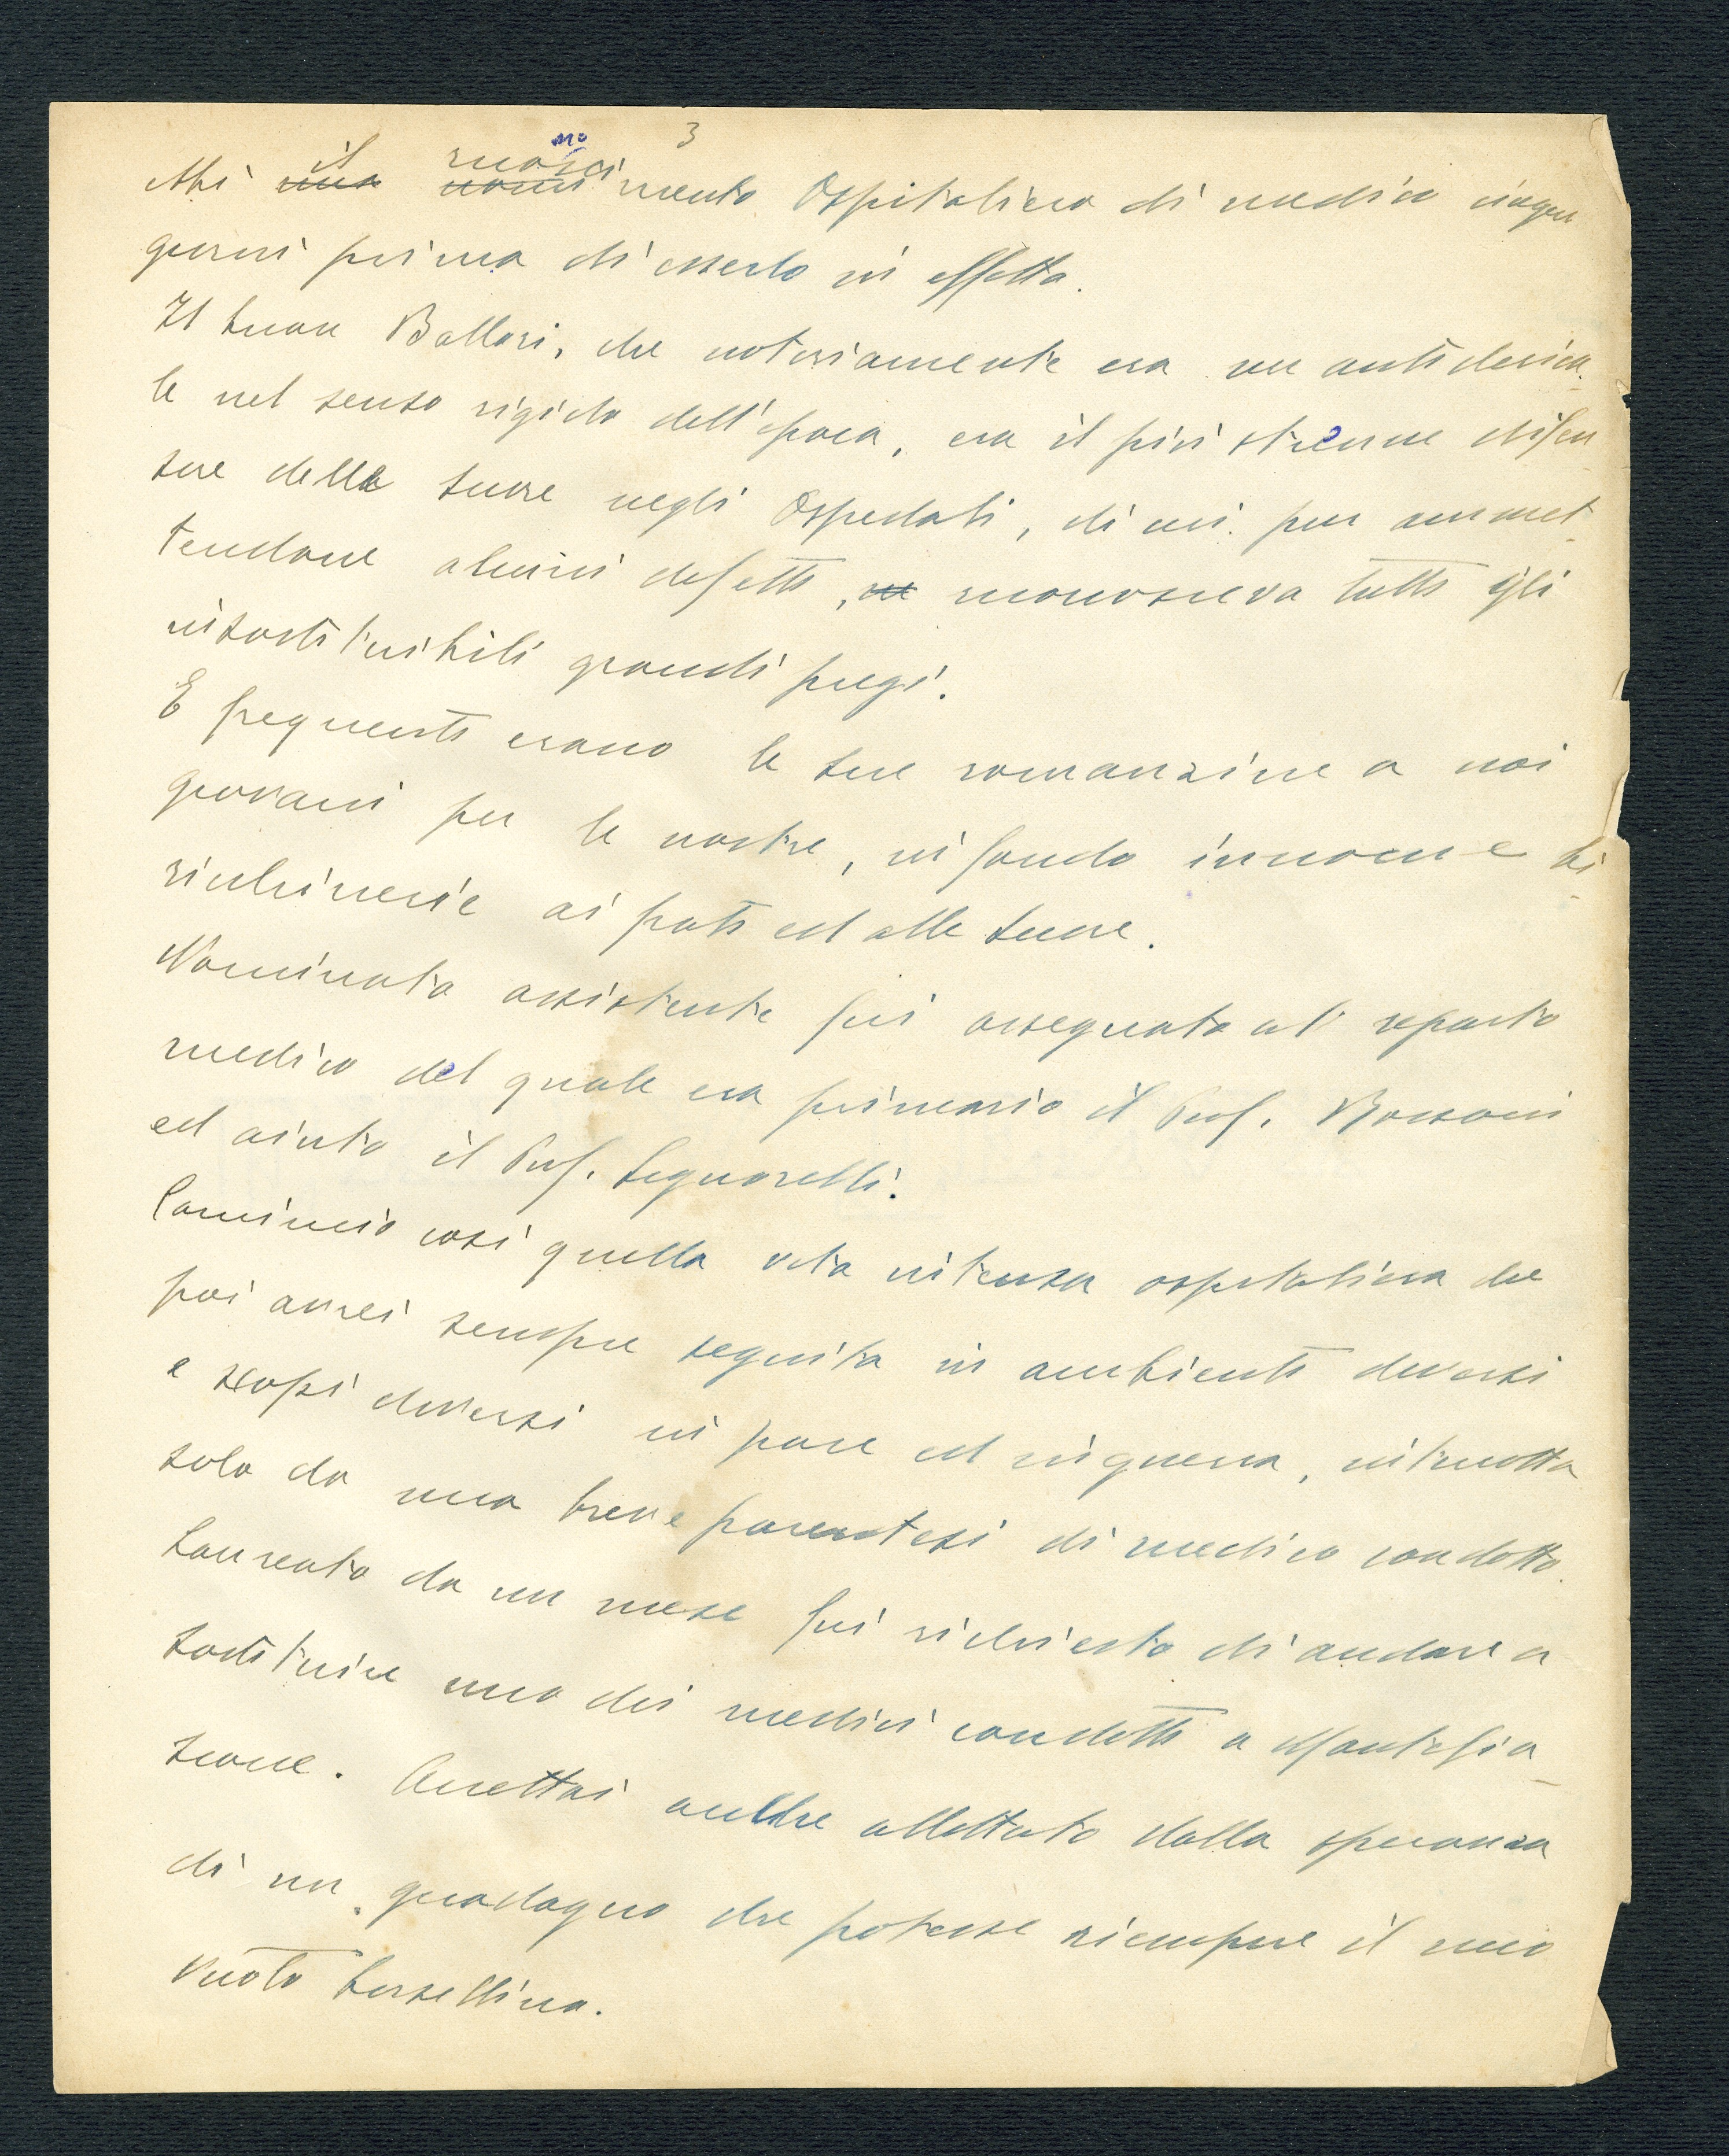 3
chi il riconosci mento Ospitaliero di medico cinque
giorni prima di esserlo in effetto.
Il buon Ballori, che notoriamente era un anticlerica-
le nel senso rigido dell'epoca, era il più strenue difen-
sore delle suore negli Ospedali, di cui. pur ammet-
tendone alcuni difetti, riconosceva tutti gli
insostituibili grandi pregi.
E frequenti erano le sue romanzine a noi
giovani per le nostre, in fondo innocue bi-
richinerie ai frati ed alle suore.
Nominato assistente fui assegnato al reparto
medico del quale era primario il Prof. Rossoni
ed aiuto il Prof. Signorelli.
Cominciò così quella vita intensa ospitaliera che
poi avrei sempre seguita in ambienti diversi
e scopi diversi in pace ed in guerra, interrotta
solo da una breve parentesi di medico condotto.
Laureato da un mese fui richiesto di andare a
sostituire uno dei medici condotti a Montefia-
scone. Accettai anche allettato dalla speranza
di un guadagno che potesse riempire il mio
vuoto borsellino.